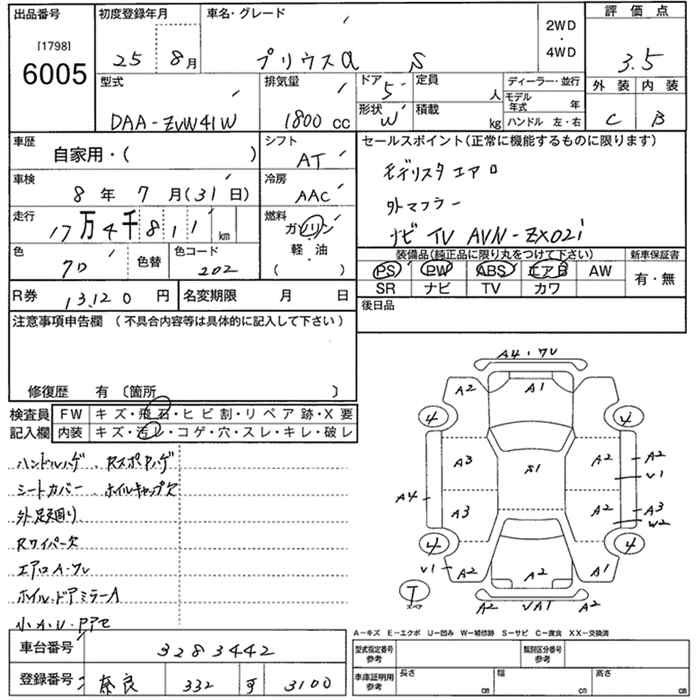 出品番号 初度登録年月 車名・グレード 評価点
[1798]
6005
25 8月 プリウスα S 2WD・4WD 3.5
型式 排気量 ドア 5 定員 人 ディーラー・並行 外装 内装
DAA-ZVW41W 1800 cc 形状 W 積載 kg モデル年式 年 ハンドル 左・右 C B
車歴 自家用・( ) シフト AT セールスポイント(正常に機能するものに限ります)
車検 8年 7月(31日) 冷房 AAC モデリスタ エアロ
外マフラー
走行 17万4千811km 燃料 ガソリン・軽油・( ) ナビ TV AVN-ZX02i
色 色替 色コード 202
装備品(純正品に限り丸をつけて下さい) 新車保証書
PS PW ABS エアB AW 有・無
SR ナビ TV カワ
R券 13,120円 名変期限 月 日 後日品
注意事項申告欄 (不具合内容等は具体的に記入して下さい)
修復歴 有 〔箇所 〕
検査員 FW キズ・飛石・ヒビ割・リペア跡・X要
記入欄 内装 キズ・汚レ・コゲ・穴・スレ・キレ・破レ
ハンドルハゲ Rスポイラハゲ
シートカバー ホイルキャップ欠
外足廻り
Rワイパー欠
エアロA・ワレ
ホイル・ドアミラーA
小A・U
A4・ワレ
A2 A1
4 4
A3 S1 A2 A2
W1
A4 A3 A2 A3
W2
4 4
V1 A2 A2 A1
A2 UA1 A2
T
スペア
A-キズ E-エクボ U-凹み W-補修跡 S-サビ C-腐食 XX-交換済
車台番号 3283442
型式指定番号 参考 類別区分番号 参考
登録番号 奈良 332 す 3100
車庫証明用 参考 長さ cm 幅 cm 高さ cm